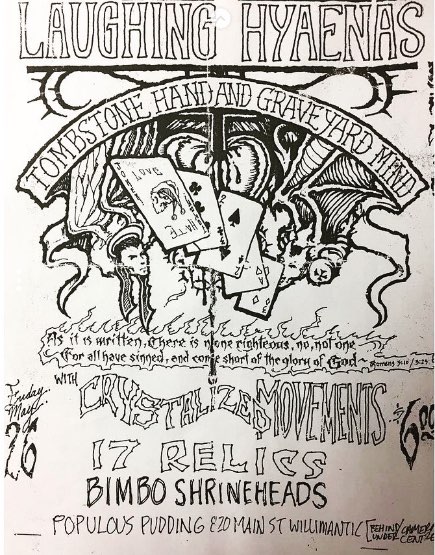 LAUGHING HYAENAS
TOMBSTONE HAND AND GRAVEYARD MIND
LOVE
HATE
As it is written, there is none righteous, no, not one
For all have sinned, and come short of the glory of God~ Romans 3:10/3:23
Friday
May
26
WITH CRYSTALIZED MOVEMENTS
$6.00
17 RELICS
BIMBO SHRINEHEADS
POPULOUS PUDDING 220 MAIN ST WILLIMANTIC [BEHIND/UNDER CAMERA CENTRE